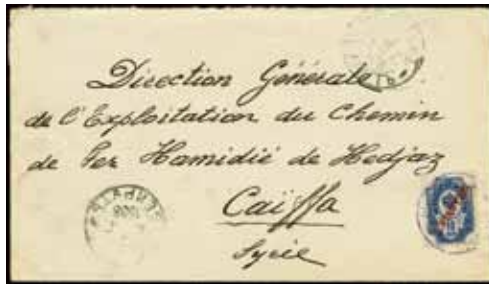 Direction Générale
de l'Exploitation du Chemin
de Fer Hamidié de Hedjaz
Caïffa
Syrie